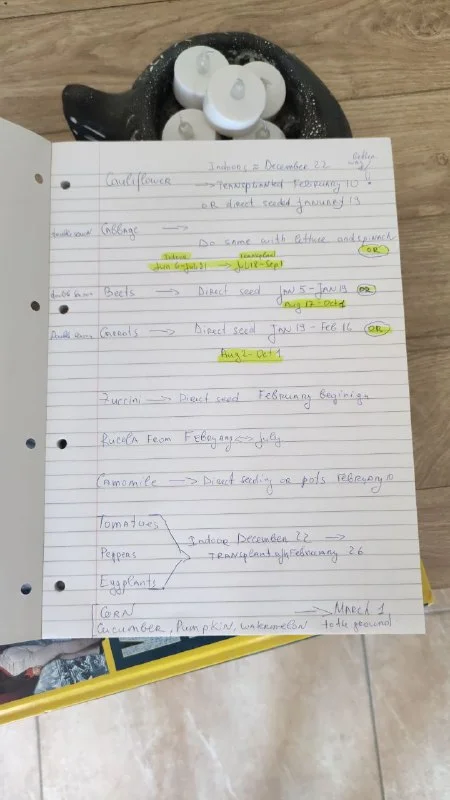 Indoors = December 22
Cauliflower → Transplanted February 10
OR direct seeded January 19
Cabbage →
Do same with lettuce and spinach
OR
Indoor Transplant
→ Jul 18 - Sep 1
Beets → Direct seed Jan 5 - Jan 19 OR
Aug 17 - Oct 1
Double season Carrots → Direct seed Jan 19 - Feb 16 OR
Aug 2 - Oct 1
Zuccini → Direct seed February beginign
Rucola From Febryany ↔ July
Camomile → Direct seeding or pots Febryary
Tomatues
Indoor December 22 →
Peppers
Transplant February 26
Eggplants
Corn → March 1
Cucumber, Pumpkin, Watermelon to the ground